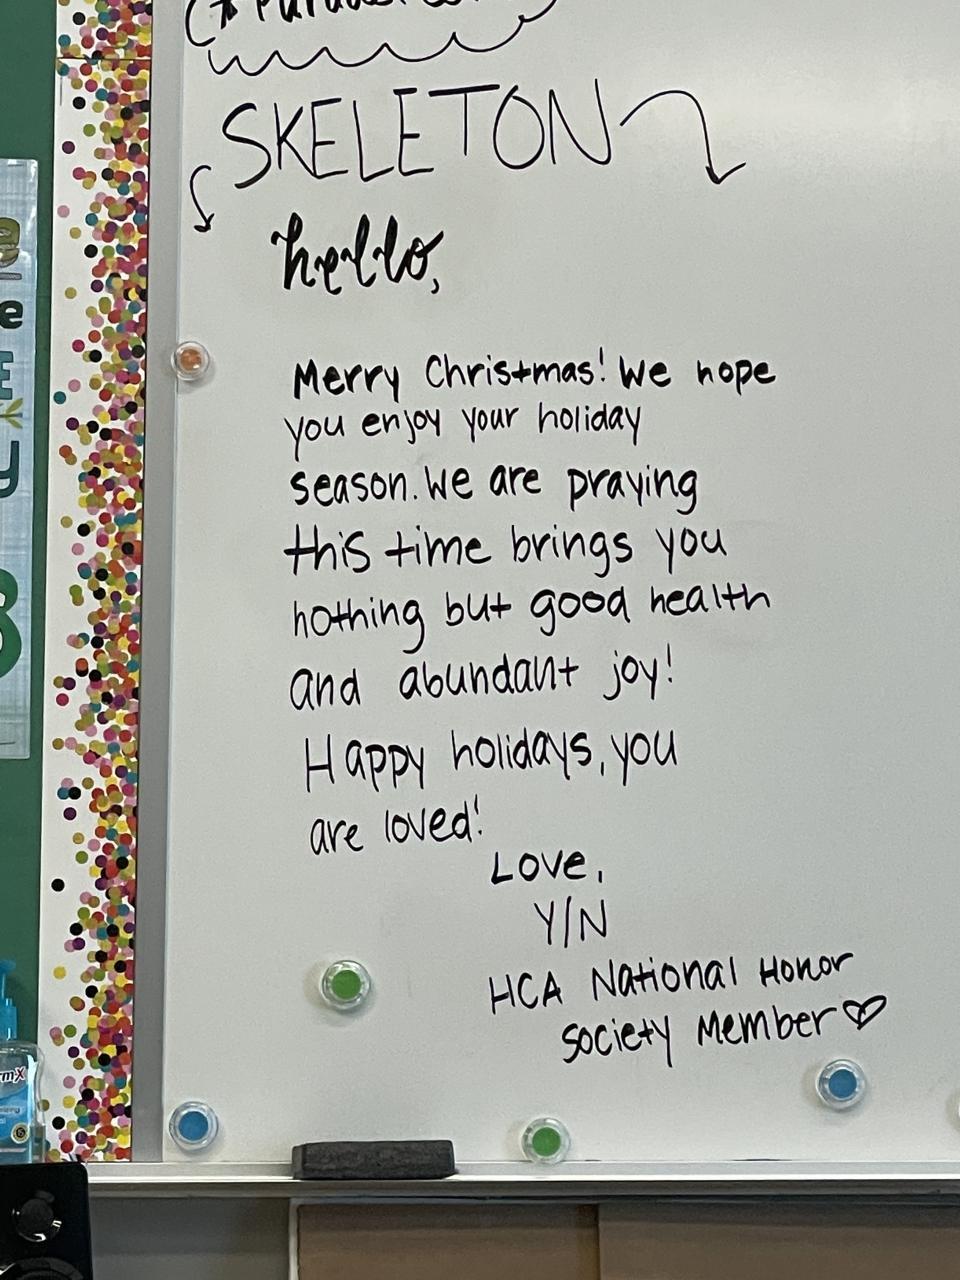 SKELETON
hello,
Merry Christmas! We hope
you enjoy your holiday
season. We are praying
this time brings you
nothing but good health
and abundant joy!
Happy holidays, you
are loved!
Love,
Y/N
HCA National Honor
Society Member